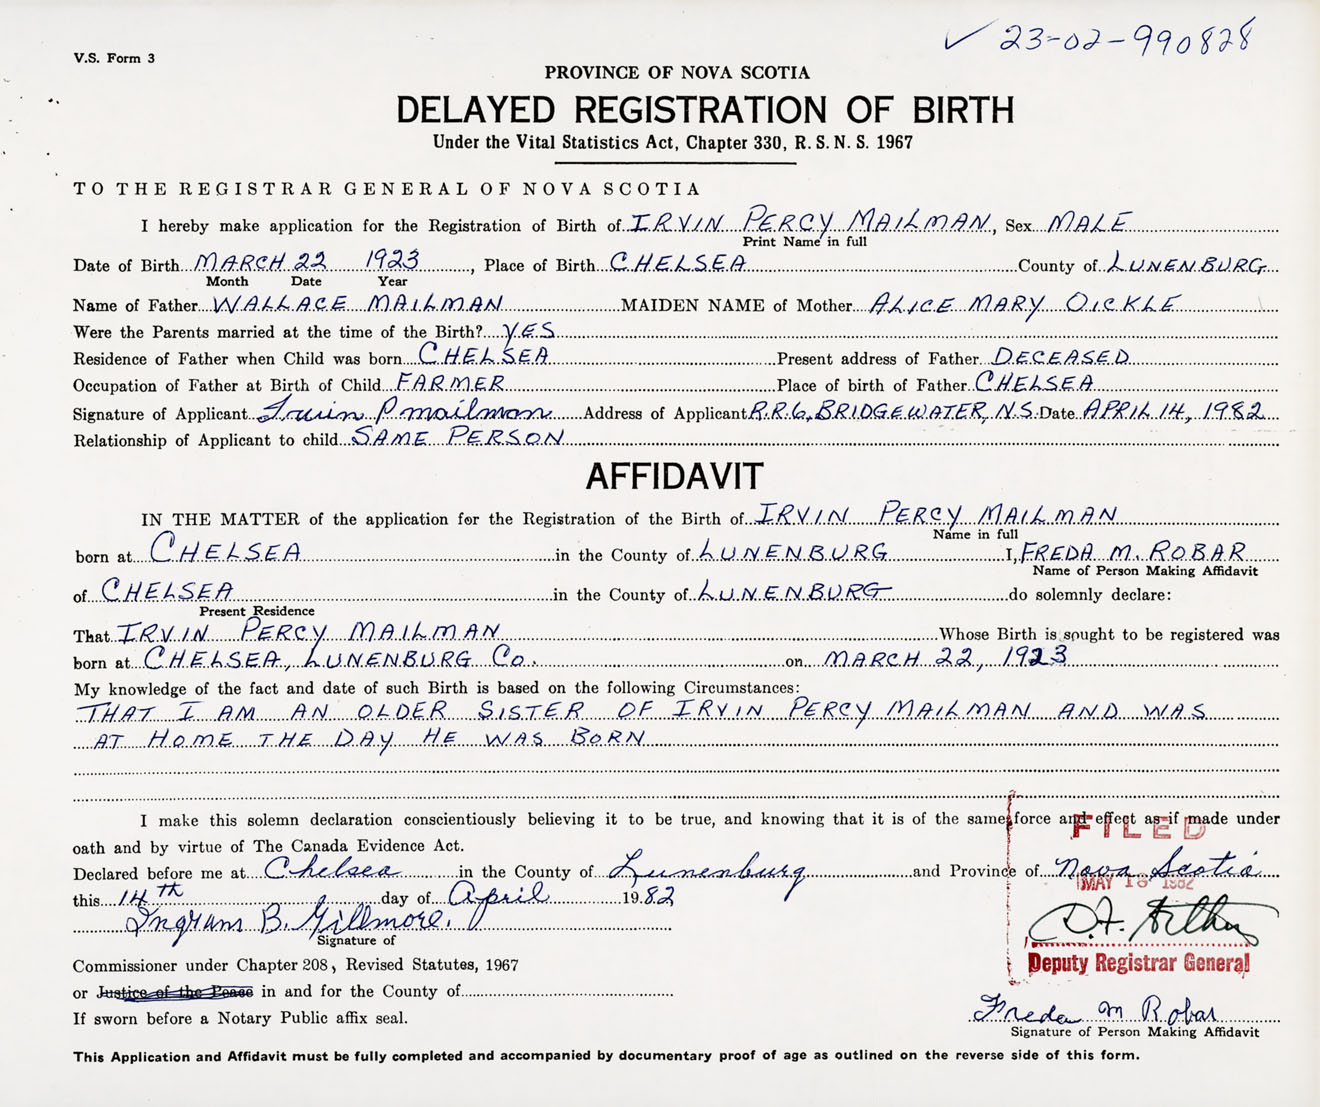 ✓ 23-02-990828
V.S. Form 3
PROVINCE OF NOVA SCOTIA
DELAYED REGISTRATION OF BIRTH
Under the Vital Statistics Act, Chapter 330, R. S. N. S. 1967
TO THE REGISTRAR GENERAL OF NOVA SCOTIA
I hereby make application for the Registration of Birth of IRVIN PERCY MAILMAN, Sex MALE
Print Name in full
Date of Birth MARCH 22 1923, Place of Birth CHELSEA County of LUNENBURG
Month Date Year
Name of Father WALLACE MAILMAN MAIDEN NAME of Mother ALICE MARY OICKLE
Were the Parents married at the time of the Birth? YES
Residence of Father when Child was born CHELSEA Present address of Father DECEASED
Occupation of Father at Birth of Child FARMER Place of birth of Father CHELSEA
Signature of Applicant Irvin P mailman Address of Applicant R.R.6, BRIDGEWATER, N.S. Date APRIL 14, 1982
Relationship of Applicant to child SAME PERSON
AFFIDAVIT
IN THE MATTER of the application for the Registration of the Birth of IRVIN PERCY MAILMAN
Name in full
born at CHELSEA in the County of LUNENBURG I, FREDA M. ROBAR
Name of Person Making Affidavit
of CHELSEA in the County of LUNENBURG do solemnly declare:
Present Residence
That IRVIN PERCY MAILMAN Whose Birth is sought to be registered was
born at CHELSEA, LUNENBURG Co. on MARCH 22, 1923
My knowledge of the fact and date of such Birth is based on the following Circumstances:
THAT I AM AN OLDER SISTER OF IRVIN PERCY MAILMAN AND WAS
AT HOME THE DAY HE WAS BORN
I make this solemn declaration conscientiously believing it to be true, and knowing that it is of the same force and effect as if made under
FILED
oath and by virtue of The Canada Evidence Act.
Declared before me at Chelsea in the County of Lunenburg and Province of Nova Scotia
MAY 18 1982
this 14th day of April 1982
Ingram B. Gillmore.
Signature of
Deputy Registrar General
Commissioner under Chapter 208, Revised Statutes, 1967
or Justice of the Peace in and for the County of
Freda M Robar
If sworn before a Notary Public affix seal.
Signature of Person Making Affidavit
This Application and Affidavit must be fully completed and accompanied by documentary proof of age as outlined on the reverse side of this form.